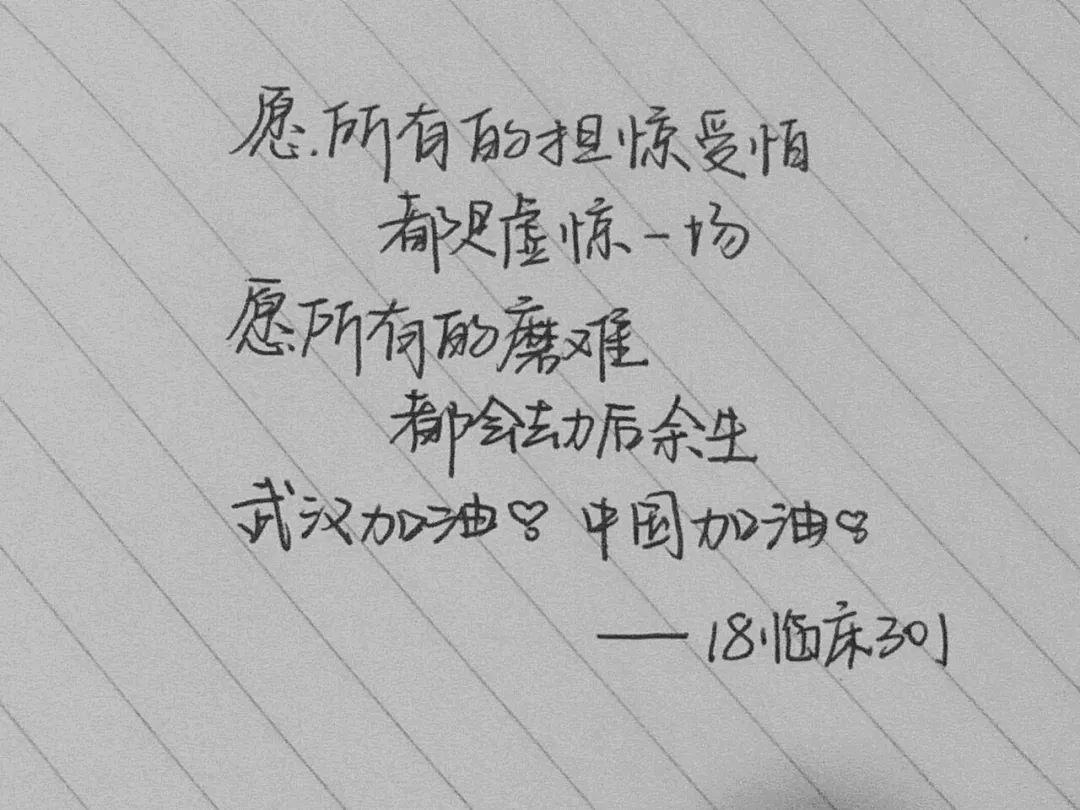 愿所有的担惊受怕
都是虚惊一场
愿所有的磨难
都会劫后余生
武汉加油♡ 中国加油♡
——18临床301